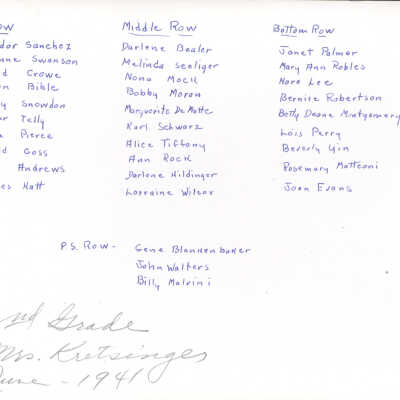 ow
dor Sanchez
nne Swanson
d Crowe
n Bible
y Snowdon
r Telly
e Pierce
d Goss
Andrews
es Hatt
Middle Row
Darlene Bealer
Melinda Seeliger
Nona Mock
Bobby Moran
Marguerite De Motte
Karl Schwarz
Alice Tiffany
Ann Rock
Darlene Hildinger
Lorraine Wilcox
Bottom Row
Janet Palmer
Mary Ann Robles
Nora Lee
Bernice Robertson
Betty Deane Montgomery
Lois Perry
Beverly Gin
Rosemary Matteoni
Joan Evans
P.S. Row - Gene Blankenbaker
John Walters
Billy Malvini
nd Grade
Mrs. Kretsinger
June - 1941